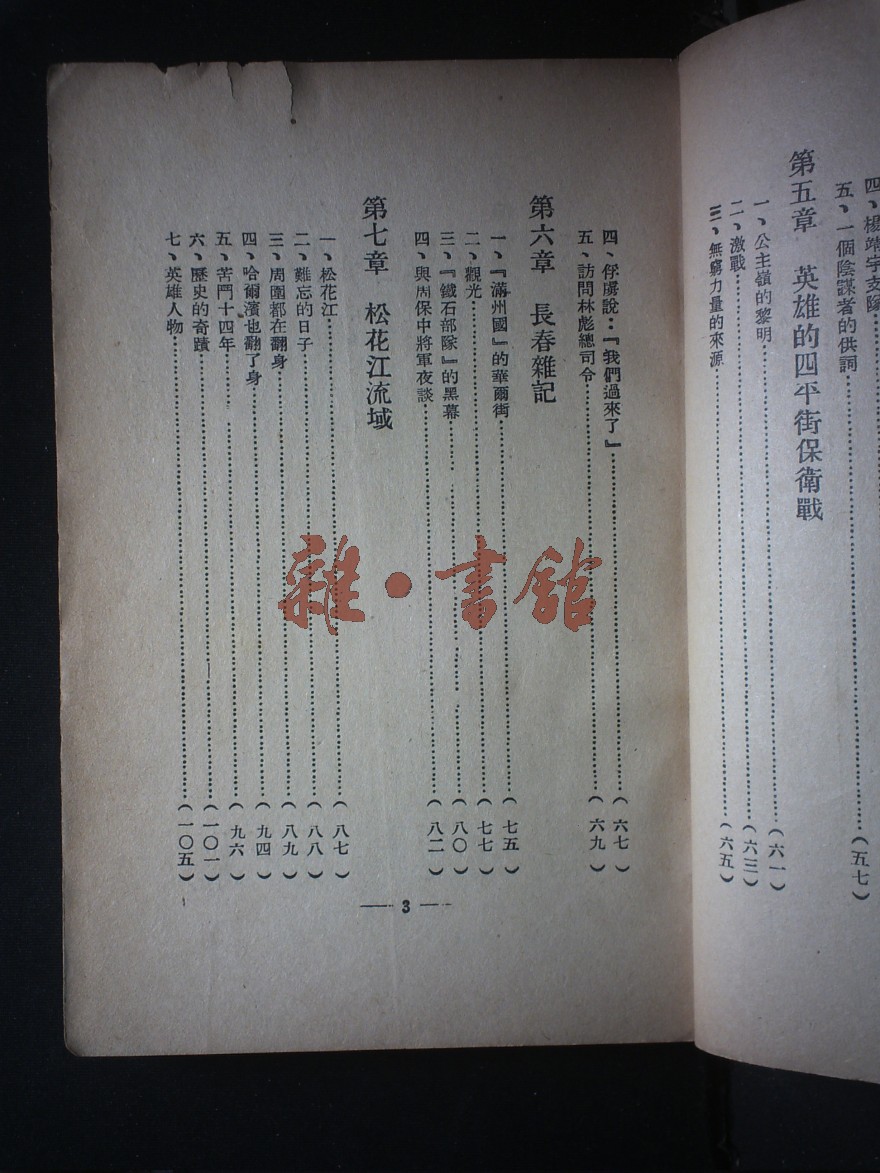 四、楊靖宇支隊
五、一個陰謀者的供詞……（五七）
第五章　英雄的四平街保衛戰
一、公主嶺的黎明……（六一）
二、激戰……（六三）
三、無窮力量的來源……（六五）
四、俘虜說：『我們過來了』……（六七）
五、訪問林彪總司令……（六九）
第六章　長春雜記
一、『滿州國』的華爾街……（七五）
二、觀光……（七七）
三、『鐵石部隊』的黑幕……（八〇）
四、與周保中將軍夜談……（八二）
第七章　松花江流域
一、松花江……（八七）
二、難忘的日子……（八八）
三、周圍都在翻身……（八九）
四、哈爾濱也翻了身……（九四）
五、苦鬥十四年……（九六）
六、歷史的奇蹟……（一〇一）
七、英雄人物……（一〇五）
— 3 —
雜·書館